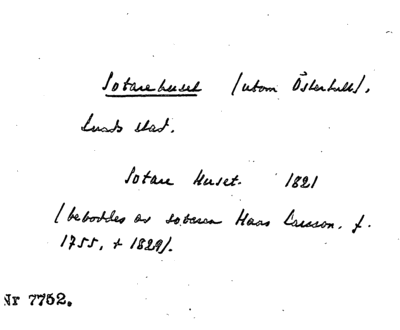 Sotarehuset (utom Östertull).
Lunds stad.
Sotare Huset. 1821
(beboddes av sotaren Hans Larsson, f.
1755, + 1829).
Nr 7752.